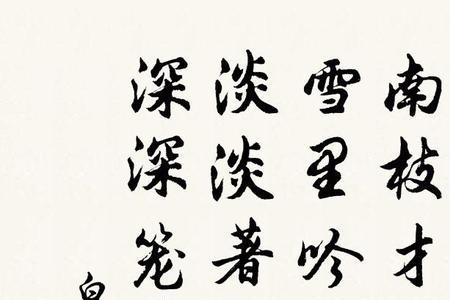 南枝才
雪里吟
淡淡著
深深笼
白